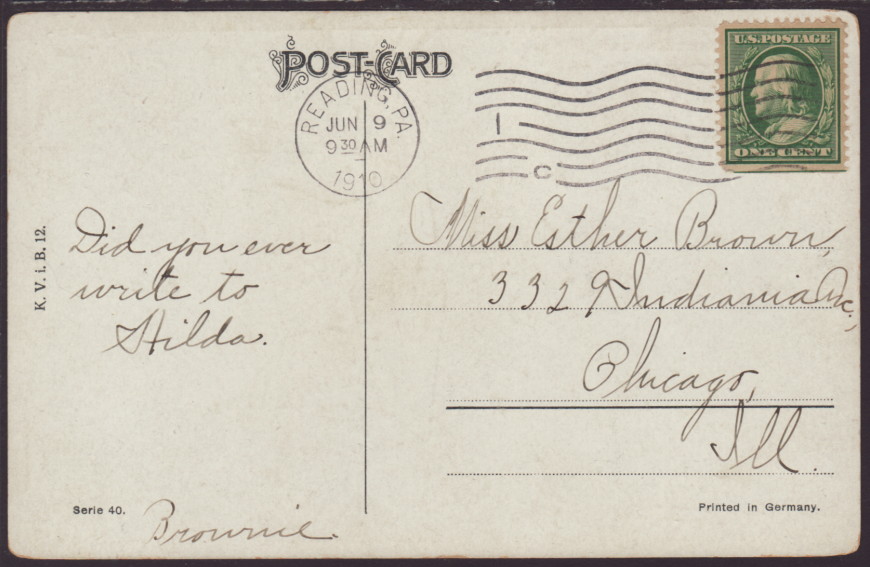 POST-CARD
U.S. POSTAGE
ONE CENT
READING, PA.
JUN 9
9 30 AM
1910
1
C
K. V. i. B. 12.
Did you ever
write to
Hilda.
Brownie.
Miss Esther Brown,
3329 Indiania Av.,
Chicago,
Ill.
Serie 40.
Printed in Germany.